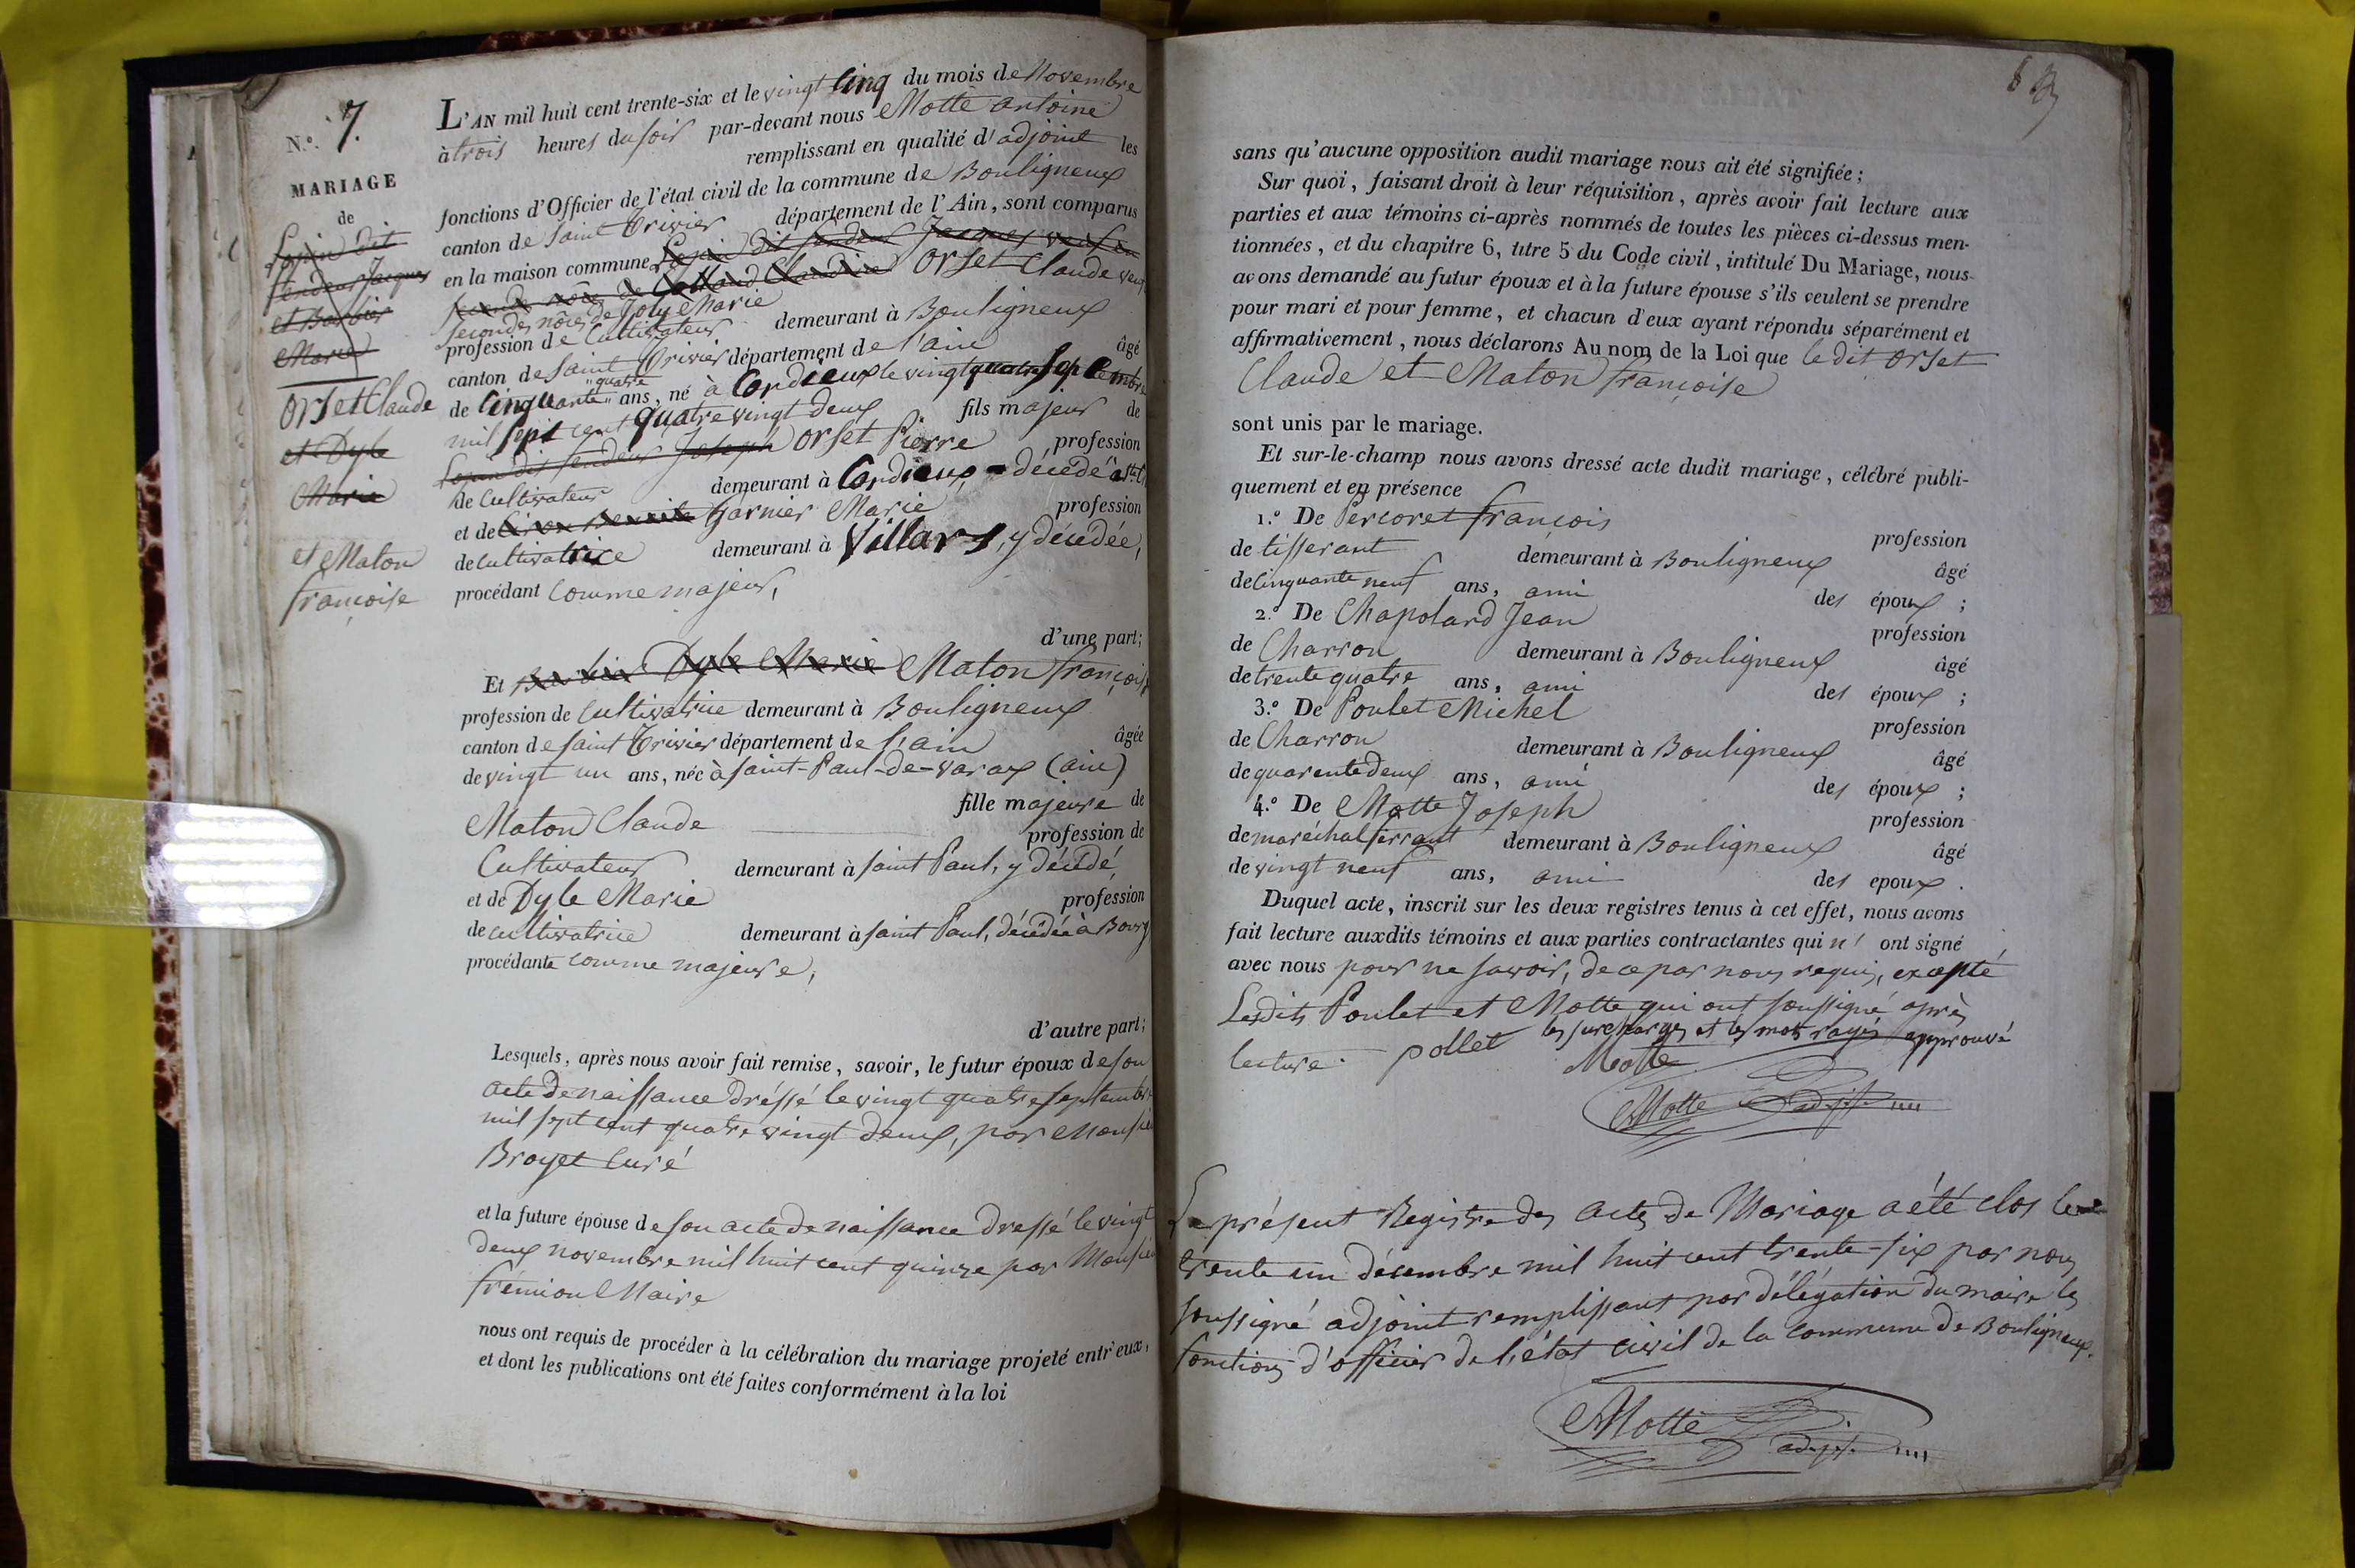 N.º 7.
MARIAGE
de
Lapin dit
fendeur Jacques
et Barbier
Marie
Orset Claude
et Dyle
Marie
et Maton
françoise
L'AN mil huit cent trente-six et le vingt cinq du mois de Novembre
à trois heures du soir par-devant nous Motte antoine
remplissant en qualité d'adjoint les
fonctions d'Officier de l'état civil de la commune de Bouligneux
canton de Saint Trivier département de l'Ain, sont comparus
en la maison commune Lapin dit fendeur Jacques veuf en
secondes nôces de Claudine Orset Claude veuf
secondes nôces de Joly Marie
profession de Cultivateur demeurant à Bouligneux
canton de Saint Trivier département de l'ain âgé
de Cinquante quatre ans, né à Cordieux le vingt quatre Septembre
mil sept cent quatre vingt deux fils majeur de
Lapin dit fendeur Joseph Orset Pierre profession
de Cultivateur demeurant à Cordieux décédé
et de Benoite Garnier Marie profession
de cultivatrice demeurant à Villars, y décédée,
procédant comme majeur,
d'une part;
Et Barbier Dyle Marie Maton françoise
profession de Cultivatrice demeurant à Bouligneux
canton de Saint Trivier département de l'ain âgée
de vingt un ans, née à Saint-Paul-de-Varax (ain)
fille majeure de
Maton Claude profession de
Cultivateur demeurant à Saint Paul, y décédé,
et de Dyle Marie profession
de cultivatrice demeurant à Saint Paul, décédée à Bourg
procédante comme majeure,
d'autre part;
Lesquels, après nous avoir fait remise, savoir, le futur époux de son
acte de naissance dréssé le vingt quatre septembre
mil sept cent quatre vingt deux, par Monsieur
Broyet Curé
et la future épouse de son acte de naissance dressé le vingt
deux novembre mil huit cent quinze par Monsieur
fremion Maire
nous ont requis de procéder à la célébration du mariage projeté entr'eux,
et dont les publications ont été faites conformément à la loi
sans qu'aucune opposition audit mariage nous ait été signifiée;
Sur quoi, faisant droit à leur réquisition, après avoir fait lecture aux
parties et aux témoins ci-après nommés de toutes les pièces ci-dessus men-
tionnées, et du chapitre 6, titre 5 du Code civil, intitulé Du Mariage, nous
avons demandé au futur époux et à la future épouse s'ils veulent se prendre
pour mari et pour femme, et chacun d'eux ayant répondu séparément et
affirmativement, nous déclarons Au nom de la Loi que le dit Orset
Claude et Maton françoise
sont unis par le mariage.
Et sur-le-champ nous avons dressé acte dudit mariage, célébré publi-
quement et en présence
1.º De Percoret françois profession
de tisserant demeurant à Bouligneux âgé
de cinquante neuf ans, ami des époux ;
2.º De Chapolard Jean profession
de Charron demeurant à Bouligneux âgé
de trente quatre ans, ami des époux ;
3.º De Poulet Michel profession
de Charron demeurant à Bouligneux âgé
de quarente deux ans, ami des époux ;
4.º De Motte Joseph profession
de maréchal ferrant demeurant à Bouligneux âgé
de vingt neuf ans, ami des epoux .
Duquel acte, inscrit sur les deux registres tenus à cet effet, nous avons
fait lecture auxdits témoins et aux parties contractantes qui n' ont signé
avec nous pour ne savoir, de ce par nous requis, excepté
Lesdits Poulet et Motte qui ont soussigné après
lecture. les surcharges et les mots rayés approuvé
pollet Motte
Motte adjoint
Le présent Registre des actes de Mariage a été clos le
trente un décembre mil huit cent trente-six par nous
soussigné adjoint remplissant par délégation du maire les
fonctions d'officier de l'état civil de la commune de Bouligneux.
Motte adjoint